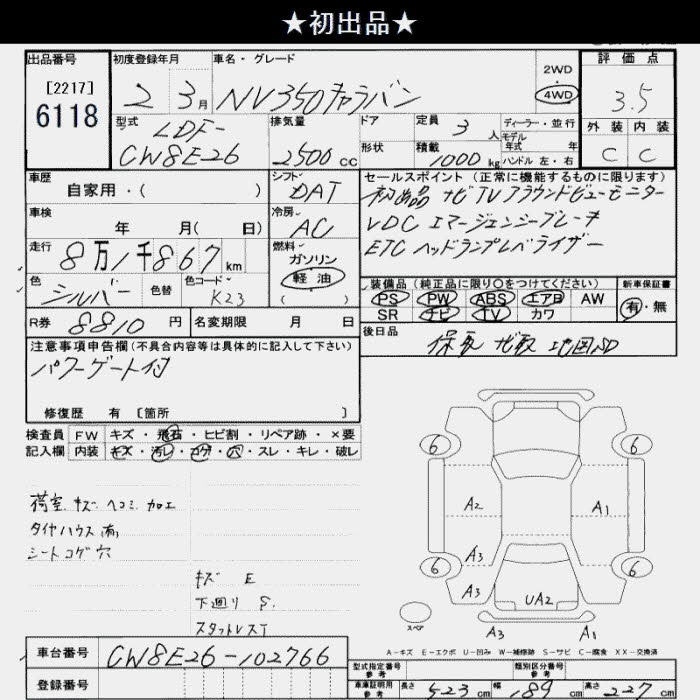 ★初出品★
出品番号
[2217]
6118
初度登録年月
2 3月
車名・グレード
NV350キャラバン
2WD
4WD
評価点
3.5
外装 内装
C C
型式
LDF-
CW8E26
排気量
2500cc
ドア
形状
定員 3人
積載 1000kg
ディーラー・並行
モデル
年式 年
ハンドル 左・右
車歴
自家用・( )
シフト
DAT
セールスポイント (正常に機能するものに限ります)
初出品 ナビTVアラウンドビューモニター
VDC エマージェンシーブレーキ
ETC ヘッドランプレベライザー
車検
年 月( 日)
冷房
AC
走行
8万1千867km
燃料
ガソリン
軽油
( )
色
シルバー
色替
色コード
K23
装備品 (純正品に限り○をつけてください)
PS PW ABS エアB AW
SR ナビ TV カワ
新車保証書
有・無
R券 8810円
名変期限 月 日
後日品
保取 ナビ取 地図SD
注意事項申告欄(不具合内容等は具体的に記入して下さい)
パワーゲート付
修復歴 有 [箇所 ]
検査員
記入欄
FW キズ・飛石・ヒビ割・リペア跡・×要
内装 キズ・汚レ・コゲ・穴・スレ・キレ・破レ
荷室.キズ ヘコミ.加工
タイヤハウス
シートコゲ穴
キズ E
下廻り S.
スタットレスT
6
6
6
6
A2
A1
A3
A3
UA2
スペア
A3
A1
A-キズ E-エクボ U-凹み W-補修跡 S-サビ C-腐食 XX-交換済
車台番号
CW8E26-102766
登録番号
型式指定番号
参考
類別区分番号
参考
車庫証明用
参考
長さ 523cm
幅 189cm
高さ 227cm